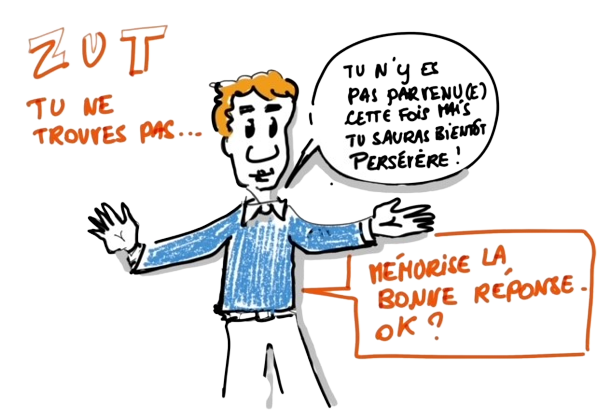 ZUT
TU NE
TROUVES PAS...
TU N'Y ES
PAS PARVENU(E)
CETTE FOIS MAIS
TU SAURAS BIENTÔT
PERSÉVÈRE !
MÉMORISE LA
BONNE RÉPONSE.
OK ?